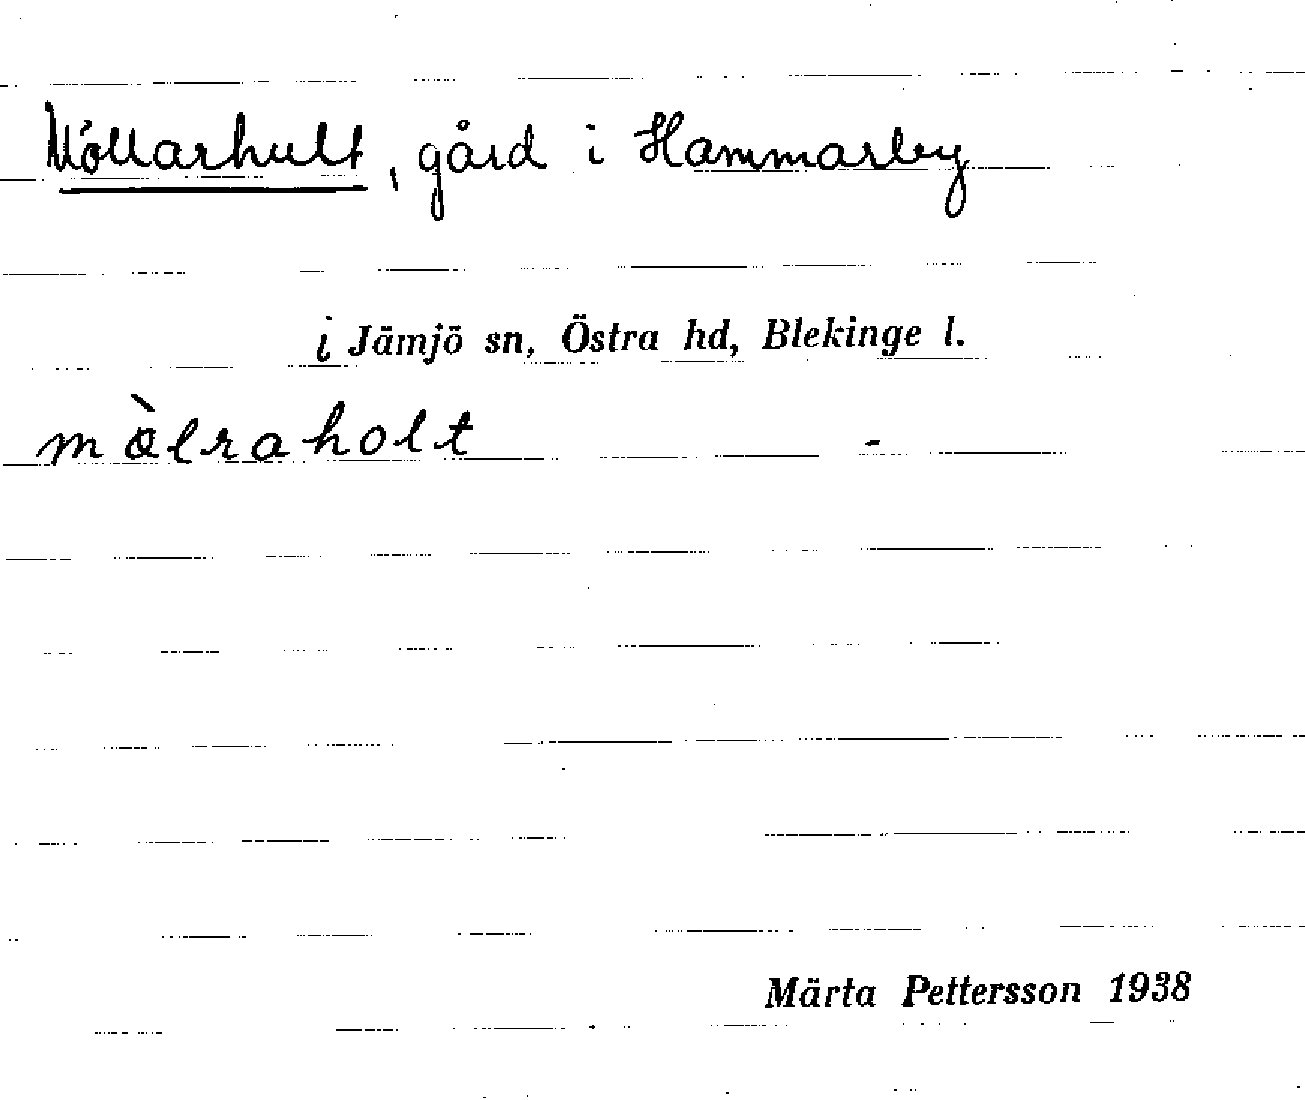 Möllarhult, gård i Hammarby
i Jämjö sn, Östra hd, Blekinge l.
màlraholt -
Märta Pettersson 1938